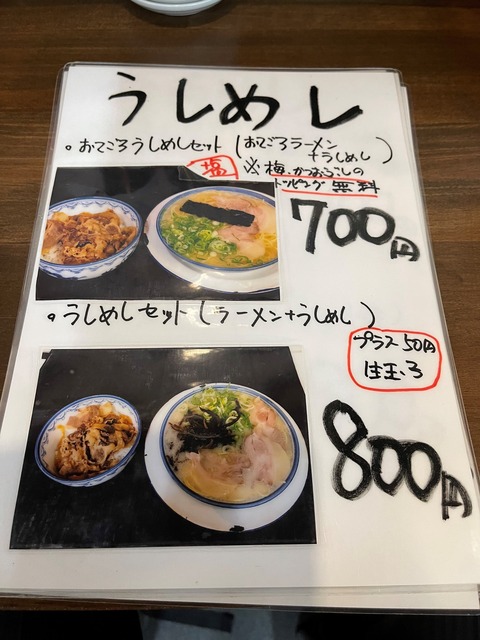 うしめし
。おてごろうしめしセット(おてごろラーメン
+うしめし)
塩 ※梅・かつおぶしの
トッピング無料
700円
。うしめしセット(ラーメン+うしめし)
プラス50円
生玉子
800円